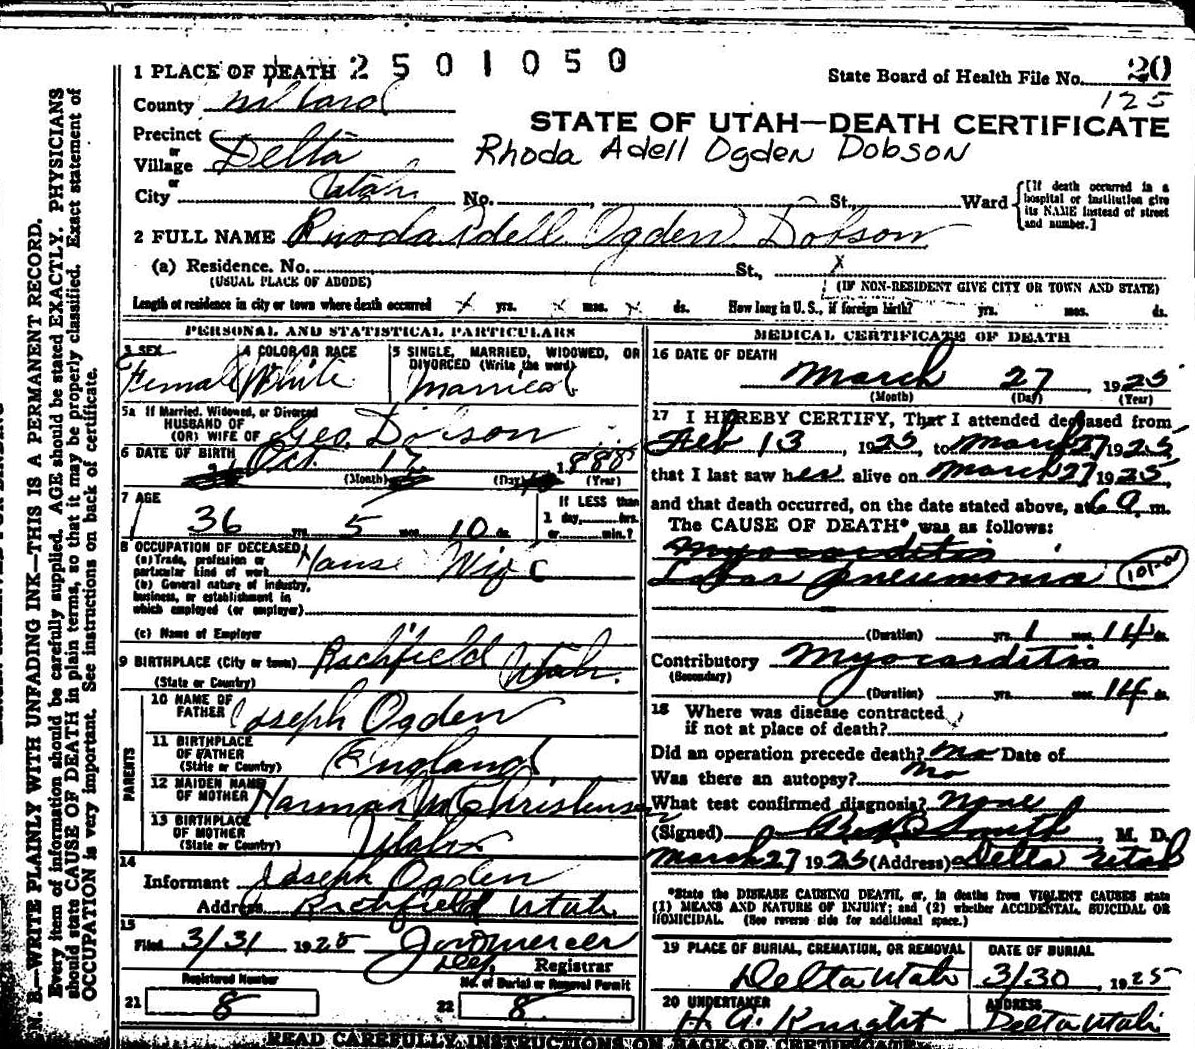 1 PLACE OF DEATH 2 5 0 1 0 5 0
State Board of Health File No. 20
125
County Millard
STATE OF UTAH—DEATH CERTIFICATE
Precinct
or
Village Delta
Rhoda Adell Ogden Dobson
or
City Utah No. St. Ward
[If death occurred in a hospital or institution give its NAME instead of street and number.]
2 FULL NAME Rhoda Adell Ogden Dobson
(a) Residence. No. St., X
(USUAL PLACE OF ABODE) (IF NON-RESIDENT GIVE CITY OR TOWN AND STATE)
Length of residence in city or town where death occurred x yrs. x mos. x ds. How long in U. S., if foreign birth? yrs. mos. ds.
PERSONAL AND STATISTICAL PARTICULARS
3 SEX
Female
4 COLOR OR RACE
White
5 SINGLE, MARRIED, WIDOWED, OR DIVORCED (Write the word)
Married
5a If Married, Widowed, or Divorced
HUSBAND OF
(OR) WIFE OF Geo. Dobson
6 DATE OF BIRTH Oct. 17 1888
(Month) (Day) (Year)
7 AGE
36 yrs. 5 mos. 10 ds.
If LESS than
1 day, hrs.
or min.?
8 OCCUPATION OF DECEASED
(a) Trade, profession or
particular kind of work House Wife
(b) General nature of industry,
business, or establishment in
which employed (or employer)
(c) Name of Employer
9 BIRTHPLACE (City or town) Richfield Utah.
(State or Country)
PARENTS
10 NAME OF
FATHER Joseph Ogden
11 BIRTHPLACE
OF FATHER
(State or Country) England
12 MAIDEN NAME
OF MOTHER
13 BIRTHPLACE
OF MOTHER
(State or Country) Utah
14
Informant Joseph Ogden
Address Richfield Utah
15
Filed 3/31 1925
Dep. Registrar
Registered Number
21 8
No. of Burial or Removal Permit
22 8
MEDICAL CERTIFICATE OF DEATH
16 DATE OF DEATH
March 27 1925
(Month) (Day) (Year)
17 I HEREBY CERTIFY, That I attended deceased from
Feb 13, 1925, to March 27 1925,
that I last saw her alive on March 27 1925,
and that death occurred, on the date stated above, at 6 a. m.
The CAUSE OF DEATH* was as follows:
Myocarditis
Lobar pneumonia
(Duration) yrs. 1 mos. 14 ds.
Contributory Myocarditis
(Secondary)
(Duration) yrs. mos. 14 ds.
18 Where was disease contracted
if not at place of death?
Did an operation precede death? no Date of
Was there an autopsy? no
What test confirmed diagnosis? none
(Signed) Smith, M. D.
March 27 1925 (Address) Delta Utah
*State the DISEASE CAUSING DEATH, or, in deaths from VIOLENT CAUSES state
(1) MEANS AND NATURE OF INJURY; and (2) whether ACCIDENTAL, SUICIDAL OR
HOMICIDAL. (See reverse side for additional space.)
19 PLACE OF BURIAL, CREMATION, OR REMOVAL
Delta Utah
DATE OF BURIAL
3/30, 1925
20 UNDERTAKER
H. A. Knight
ADDRESS
Delta Utah
READ CAREFULLY INSTRUCTIONS ON BACK OF CERTIFICATE
N. B.—WRITE PLAINLY WITH UNFADING INK—THIS IS A PERMANENT RECORD.
Every item of information should be carefully supplied. AGE should be stated EXACTLY. PHYSICIANS
should state CAUSE OF DEATH in plain terms, so that it may be properly classified. Exact statement of
OCCUPATION is very important. See instructions on back of certificate.